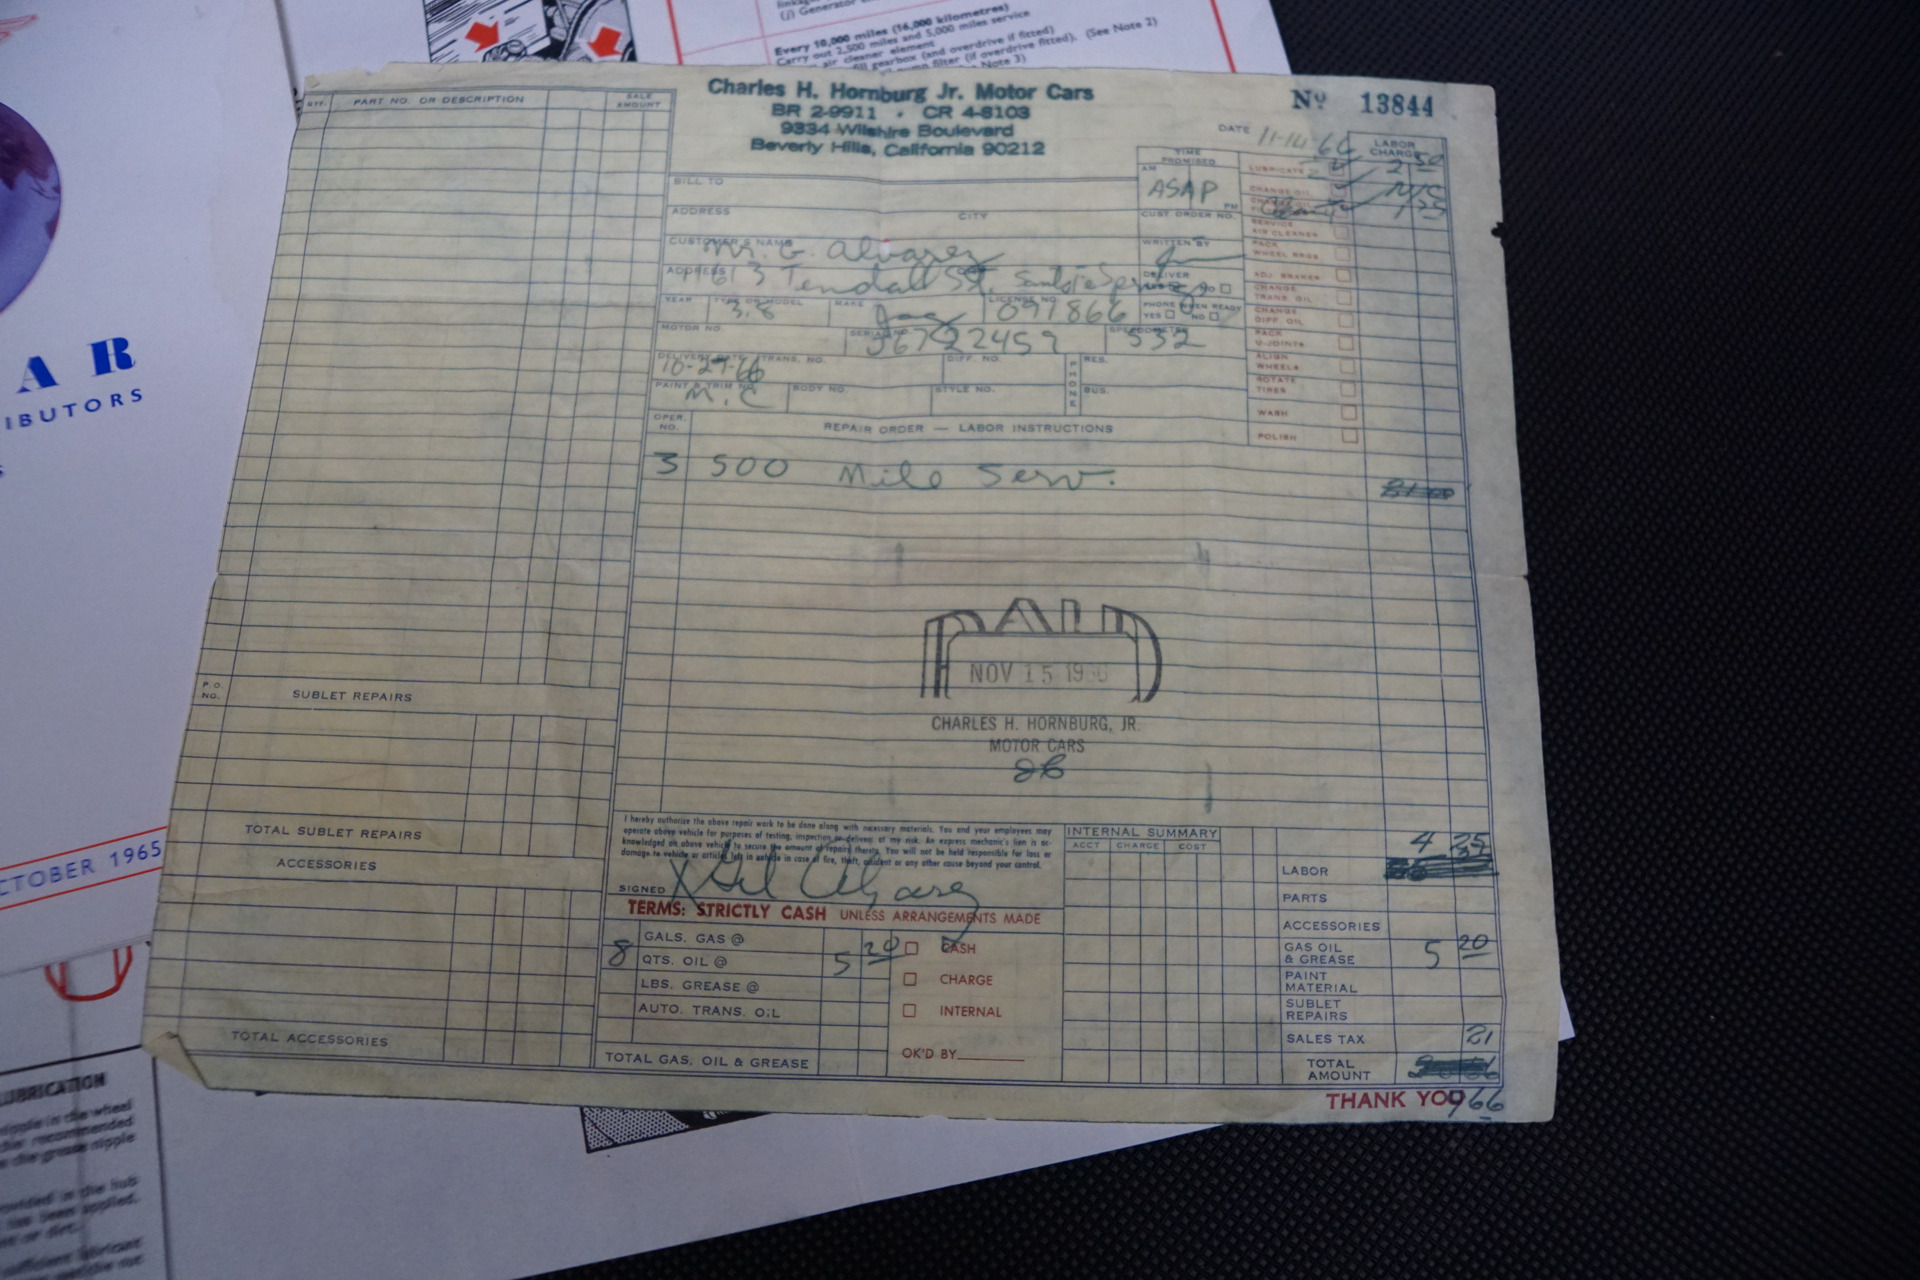 (j) Generator
Every 10,000 miles (16,000 kilometres)
Carry out 2,500 miles and 5,000 miles service
air cleaner element
gearbox (and overdrive if fitted)
filter (if overdrive fitted). (See Note 2)
Note 3)
A R
IBUTORS
CTOBER 1965
Charles H. Hornburg Jr. Motor Cars
BR 2-9911 · CR 4-8103
9334 Wilshire Boulevard
Beverly Hills, California 90212
Nº 13844
DATE 11-14-66
QTY. PART NO. OR DESCRIPTION SALE AMOUNT
LABOR CHARGE
TIME PROMISED
AM ASAP PM
LUBRICATE 2 50
CHANGE OIL N/C
1 25
SERVICE AIR CLEANER
PACK WHEEL BRGS
ADJ. BRAKES
CHANGE TRANS. OIL
CHANGE DIFF. OIL
PACK U-JOINTS
ALIGN WHEELS
ROTATE TIRES
WASH
POLISH
BILL TO
ADDRESS CITY
CUST. ORDER NO.
CUSTOMER'S NAME Mr. G. Alvarez
WRITTEN BY
ADDRESS
DELIVER
YEAR TYPE OR MODEL 3.8 MAKE Jag LICENSE NO. 091866
PHONE WHEN READY
YES NO
MOTOR NO. SERIAL NO. SPEEDOMETER 532
DELIVERY DATE 10-27-66 TRANS. NO. DIFF. NO. PHONE RES.
PAINT & TRIM NO. M.C BODY NO. STYLE NO. BUS.
OPER. NO. REPAIR ORDER — LABOR INSTRUCTIONS
3 500 Mile Serv.
PAID
NOV 15 1966
CHARLES H. HORNBURG, JR.
MOTOR CARS
P.O. NO. SUBLET REPAIRS
TOTAL SUBLET REPAIRS
ACCESSORIES
TOTAL ACCESSORIES
I hereby authorize the above repair work to be done along with necessary materials. You and your employees may
operate above vehicle for purposes of testing, inspection or delivery at my risk. An express mechanic's lien is ac-
knowledged on above vehicle to secure the amount of repairs thereto. You will not be held responsible for loss or
damage to vehicle or articles left in vehicle in case of fire, theft, accident or any other cause beyond your control.
SIGNED X Gil Alvarez
TERMS: STRICTLY CASH UNLESS ARRANGEMENTS MADE
GALS. GAS @
8 QTS. OIL @ 5 20
LBS. GREASE @
AUTO. TRANS. OIL
TOTAL GAS, OIL & GREASE
CASH
CHARGE
INTERNAL
OK'D BY
INTERNAL SUMMARY
ACCT CHARGE COST
4 25
LABOR
PARTS
ACCESSORIES
GAS OIL & GREASE 5 20
PAINT MATERIAL
SUBLET REPAIRS
SALES TAX 21
TOTAL AMOUNT
THANK YOU 9 66
LUBRICATION
nipple in the wheel
the recommended
the grease nipple
provided in the hub
has been applied,